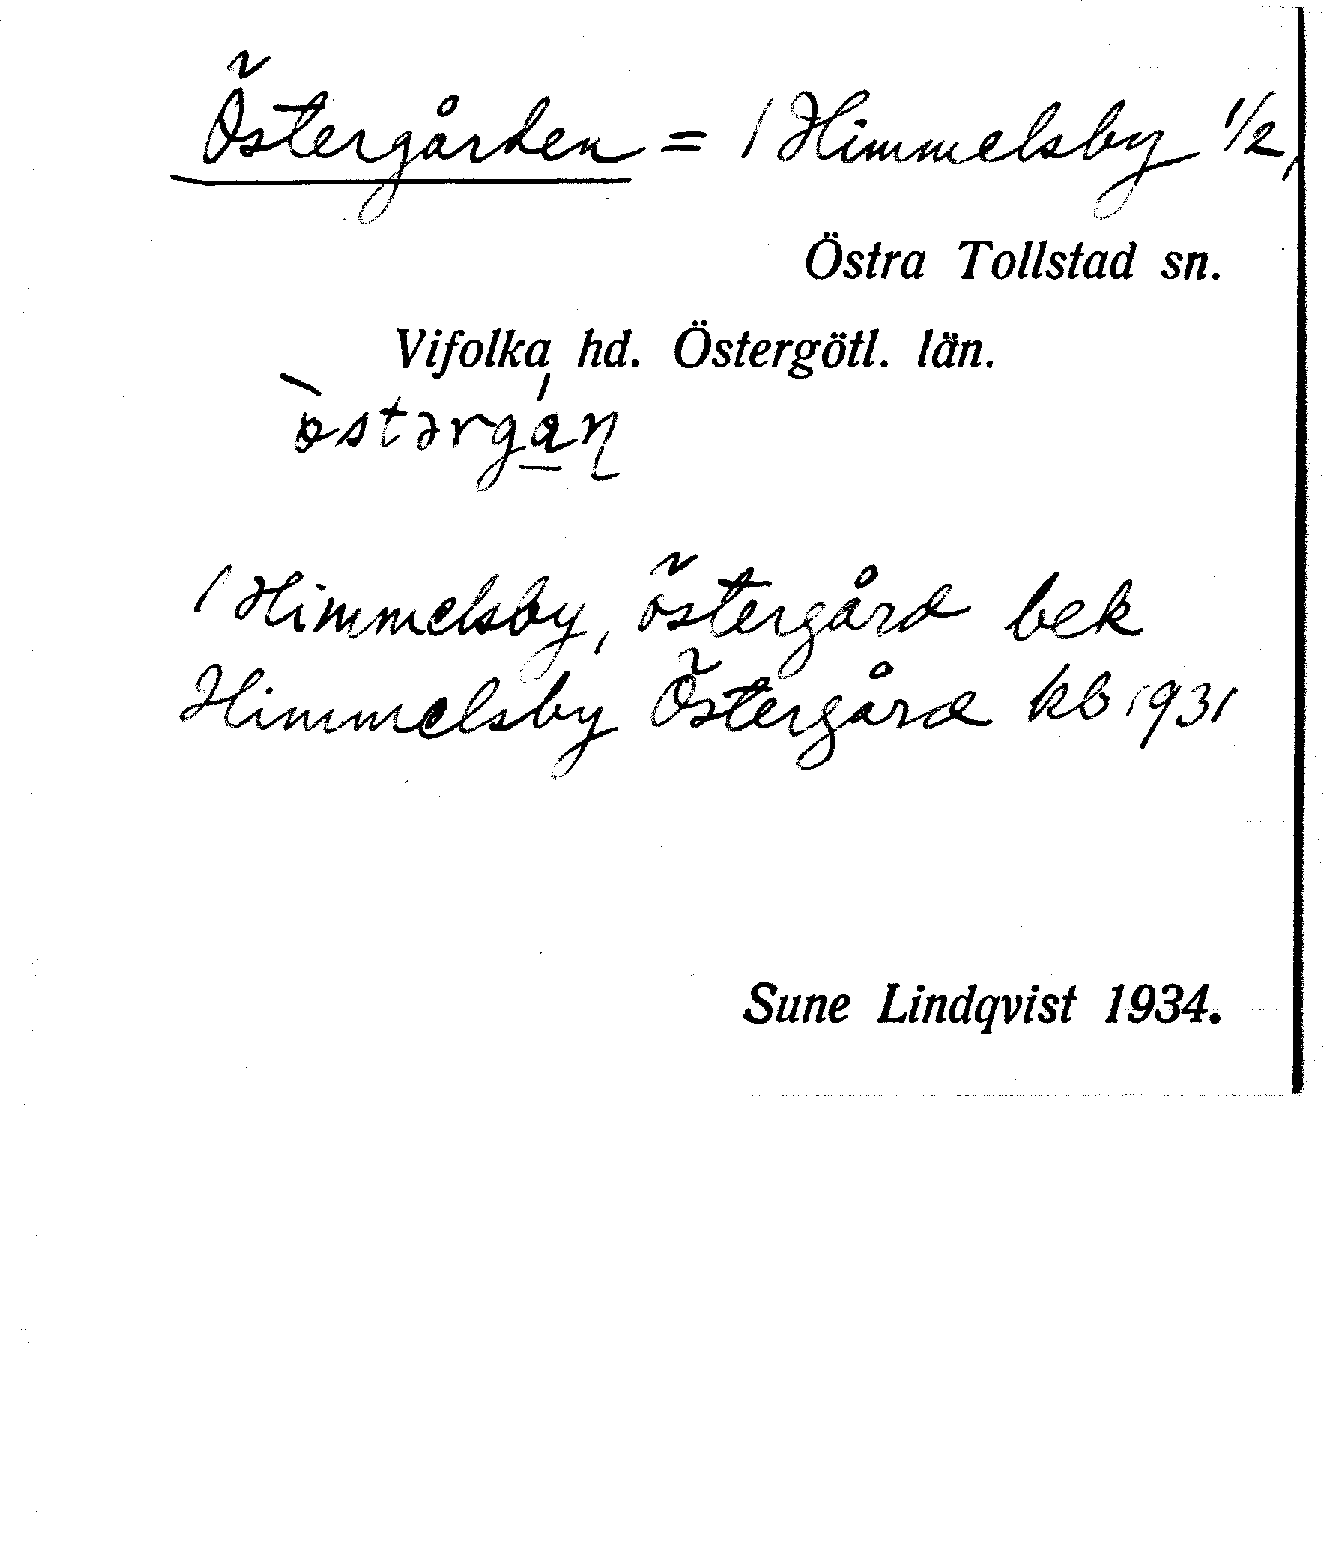 Östergården = 1 Himmelsby 1/2,
Östra Tollstad sn.
Vifolka hd. Östergötl. län.
östərgan
1 Himmelsby, östergård bek
Himmelsby Östergård kb 1931
Sune Lindqvist 1934.